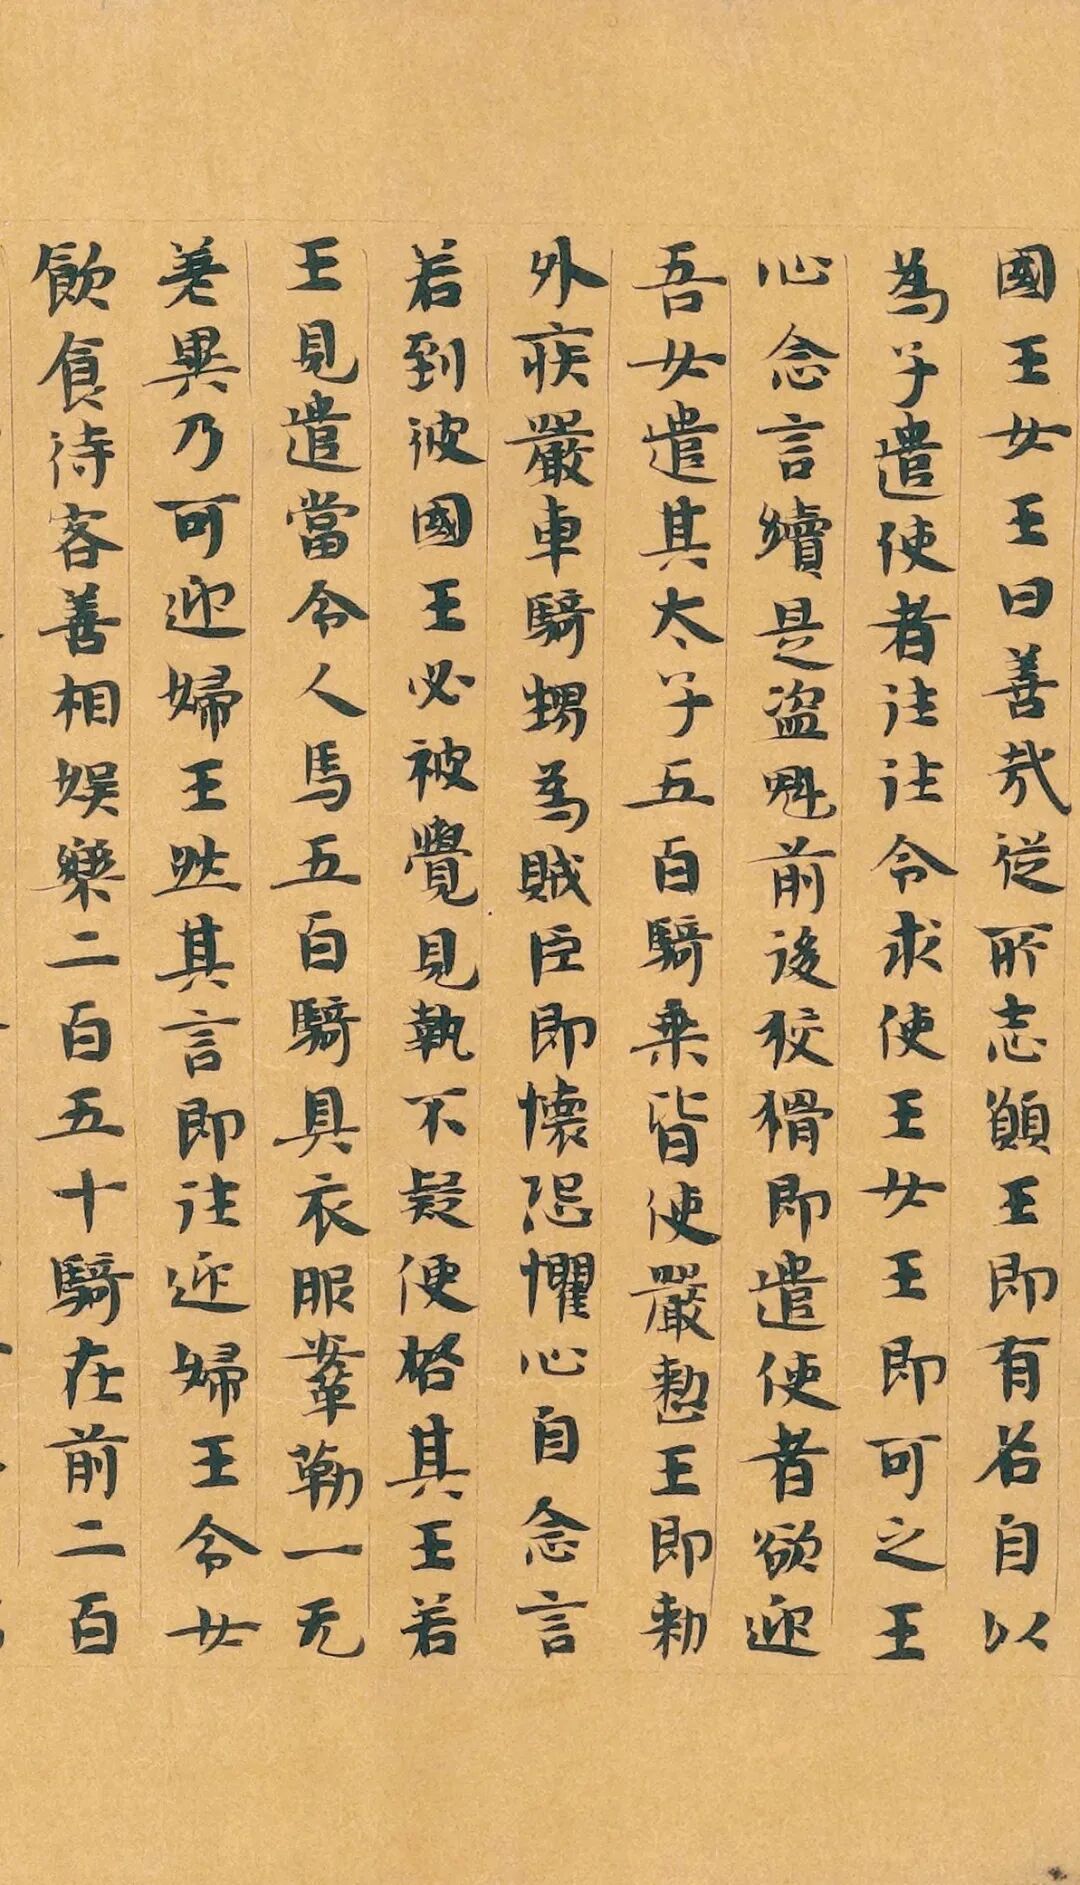 國王女王曰善哉從所志願王即有名自以
為子遣使者往往令求使王女王即可之王
心念言續是盜魁前後狡猾即遣使者欲迎
吾女遣其太子五百騎乘皆使嚴整王即勑
外疾嚴車騎甥為賊臣即懷恐懼心自念言
若到彼國王必被覺見執不疑便啓其王若
王見遣當令人馬五百騎具衣服鞌勒一无
差異乃可迎婦王然其言即往迎婦王令女
飲食待客善相娛樂二百五十騎在前二百